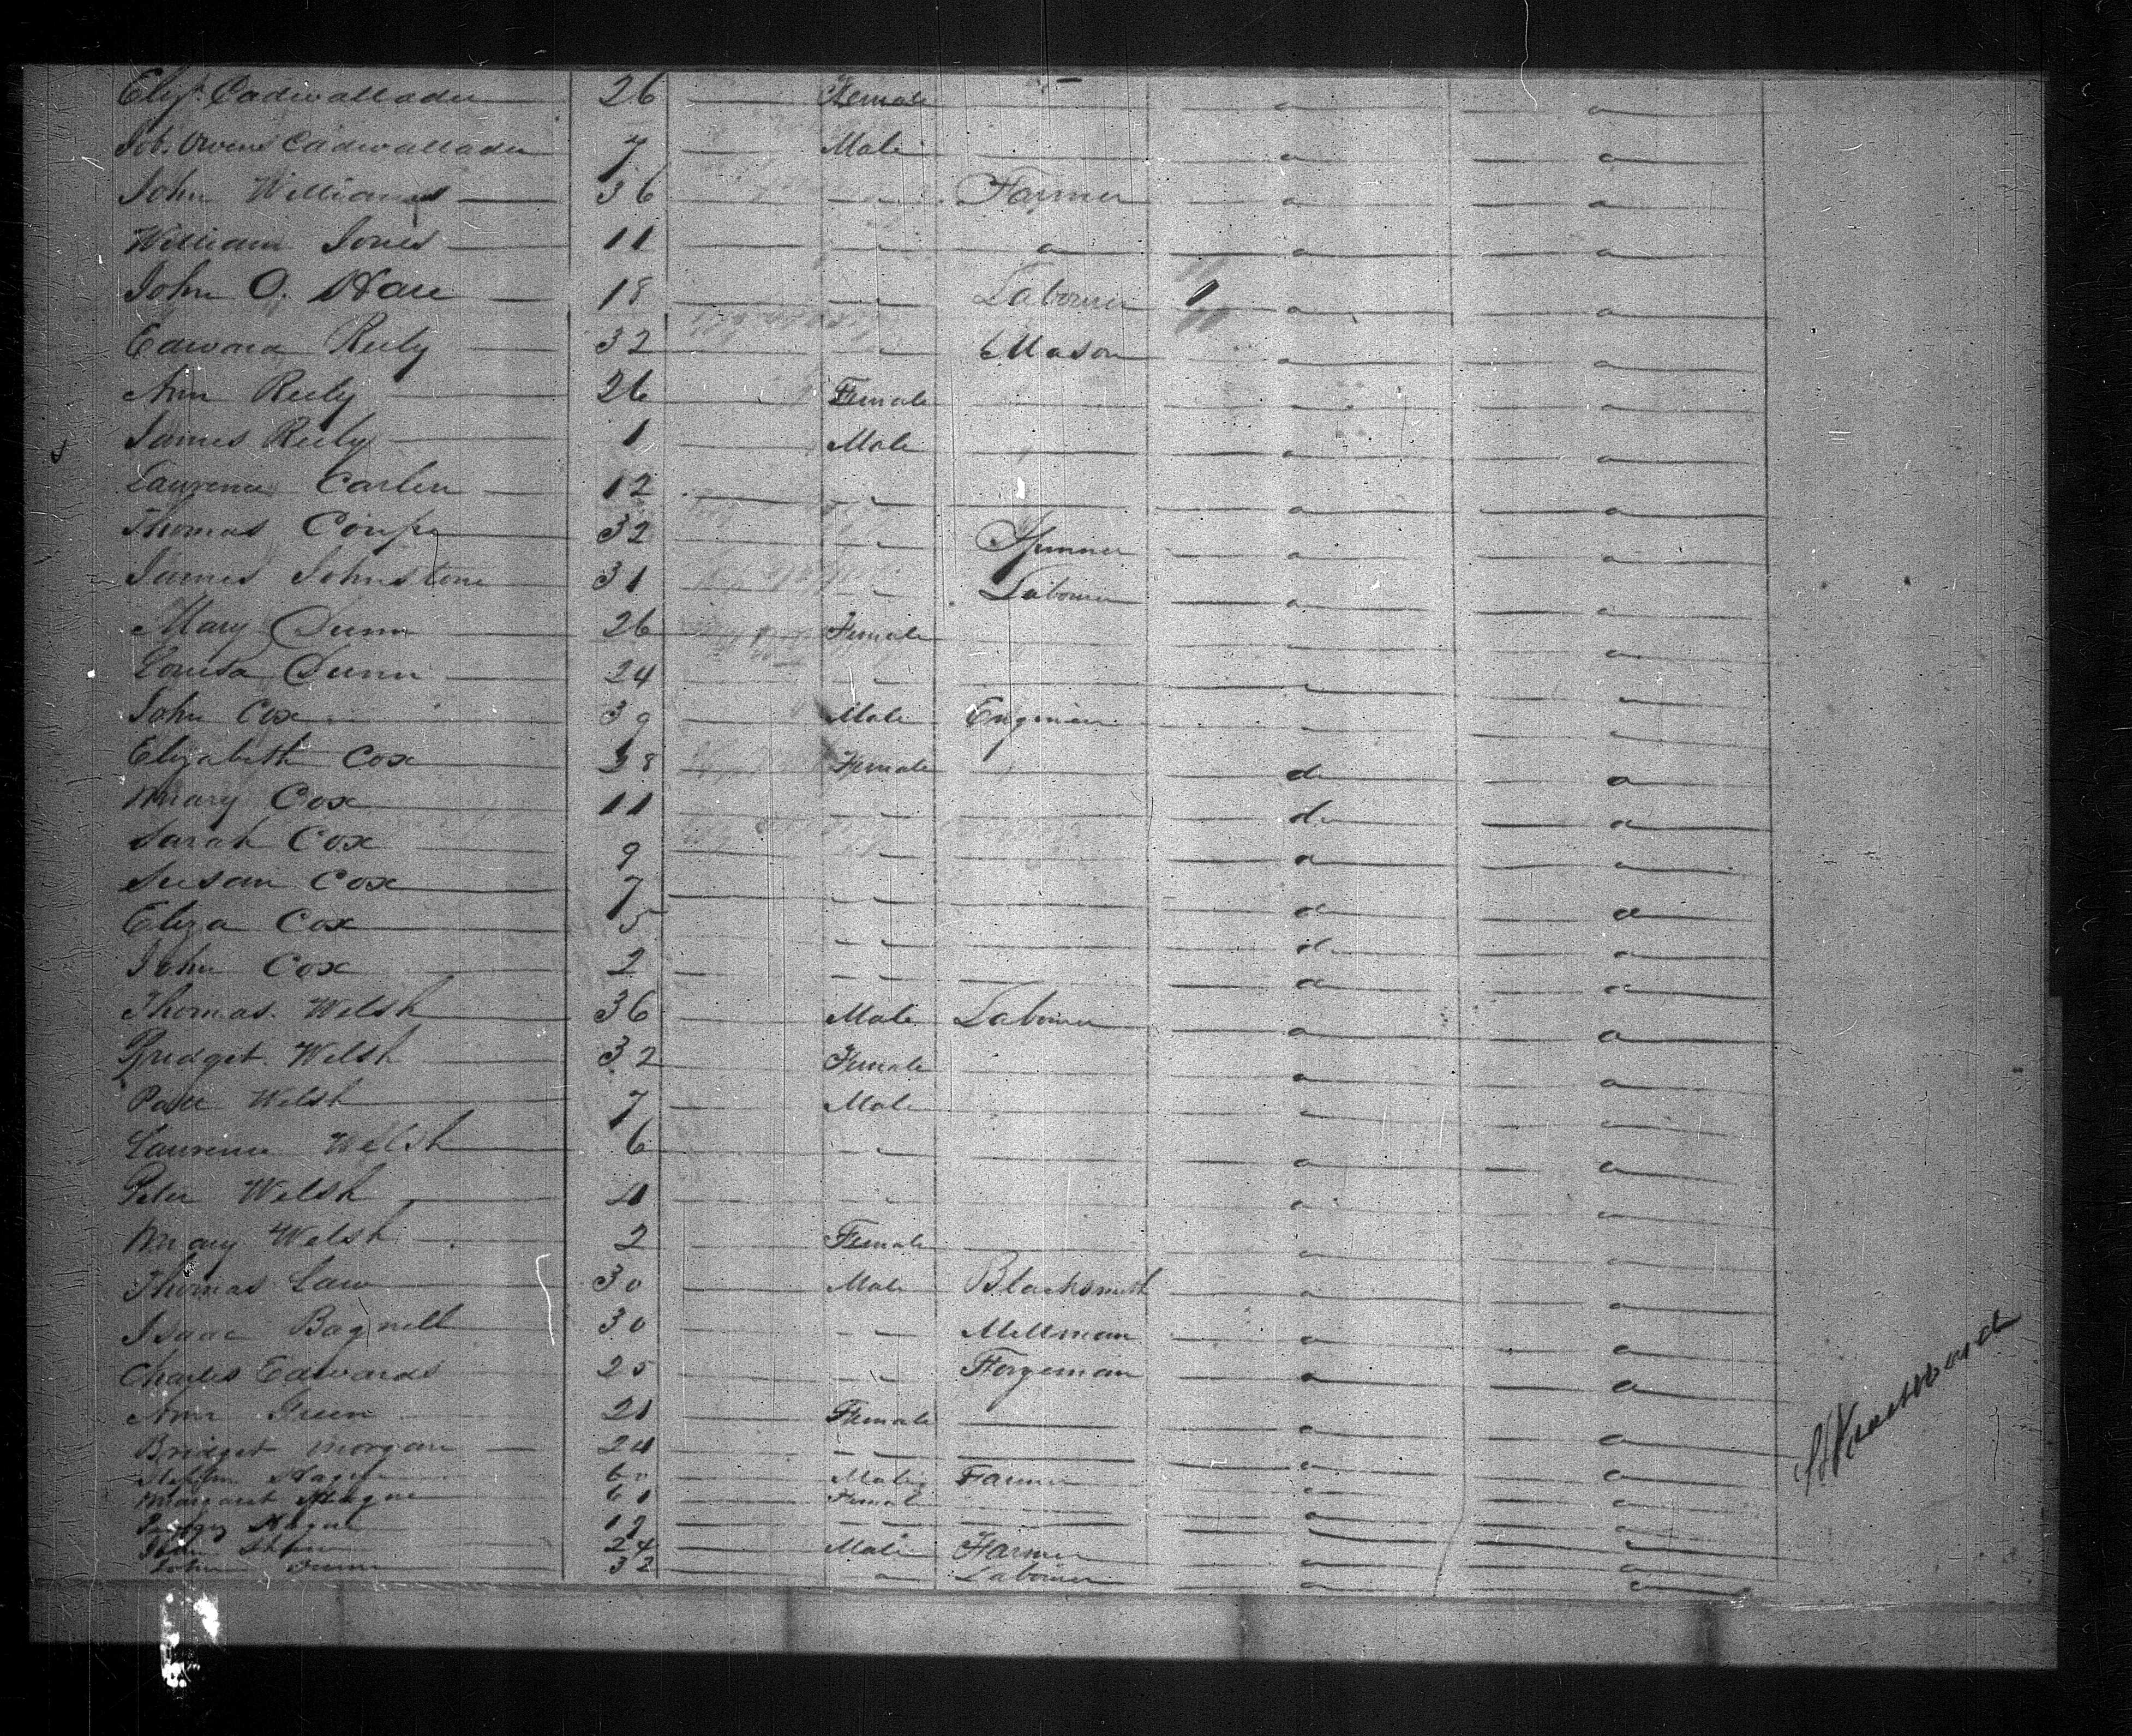 Eliz. Cadwallader 26 Female
Job. Owens Cadwallader 7 Male
John Williams 36 Farmer
William Jones 11
John O. Hare 18 Labourer
Edward Reily 32 Mason
Ann Reily 26 Female
James Reily 1 Male
Laurence Carlen 12
Thomas 32 Spinner
James Johnstone 31 Labourer
Mary Dunn 26 Female
Louisa Dunn 24
John Cox 39 Male Engineer
Elizabeth Cox 38 Female do
Mary Cox 11 do
Sarah Cox 9
Susan Cox 7
Eliza Cox 5
John Cox 2
Thomas Welsh 36 Male Labourer
Bridget Welsh 32 Female
Welsh 7 Male
Laurence Welsh 6
Peter Welsh 4
Mary Welsh 2 Female
Thomas Law 30 Male Blacksmith
Isaac Bagnell 30 Millman
Charles Edwards 25 Forgeman
Ann Green 21 Female
Bridget Morgan 24
Male Farmer
Margaret 61 Female
24 Male Farmer
John 32 Labourer